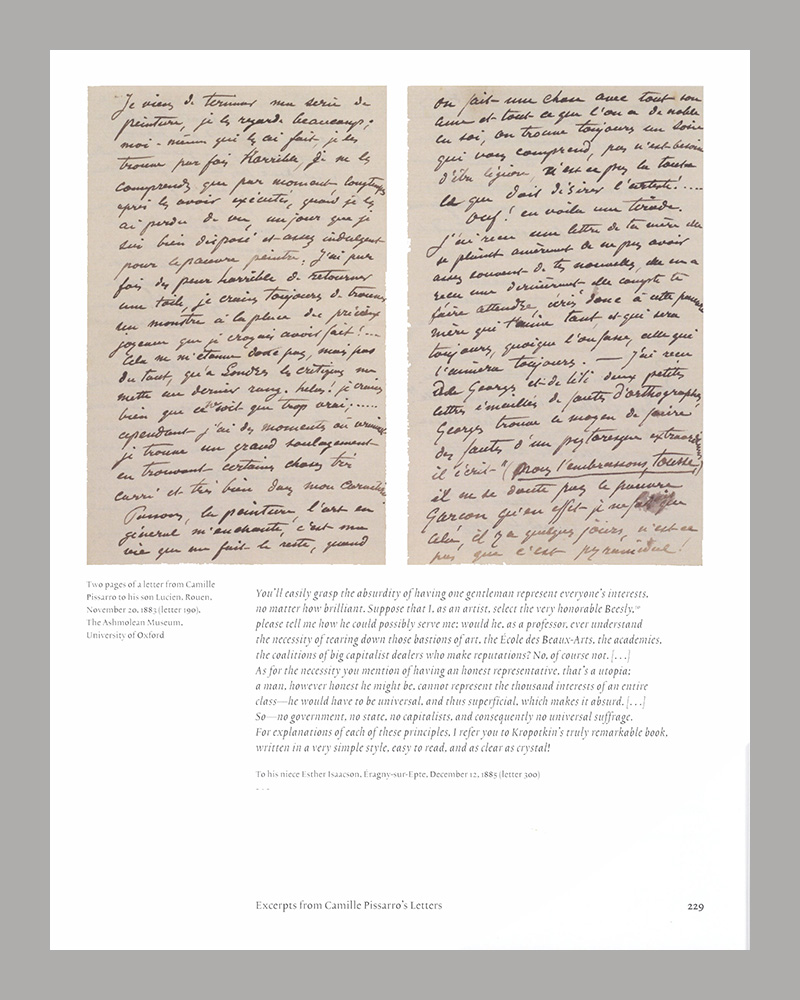 Je viens de terminer ma serie de
peinture, je les regarde beaucoup;
moi-même qui les ai fait, je les
trouve parfois horrible, je ne les
comprends que par moment longtemps
après les avoir executés, quand je les
ai perdu de vue, un jour que je
suis bien disposé et assez indulgent
pour le pauvre peintre; J'ai par
fois des peur horrible de retourner
une toile, je crains toujours de trouver
un monstre à la place des précieux
joyeaux que je croyais avoir fait!...
Cela ne m'étonne donc pas, mais pas
du tout, qu'à Londres les critiques me
mette au dernier rang. helas! je crains
bien que ce soit que trop vrai,......
cependant j'ai des moments où
je trouve un grand soulagement
en trouvant certaines choses très
carré et très bien dans mon
la peinture, l'art en
géneral m'enchante, c'est ma
vie que me fait le reste, quand
on fait une chose avec tout son
âme et tout ce que l'on a de noble
en soi, on trouve toujours un
qui vous comprend, pas n'est besoin
d'être légion, n'est ce pas la toute
ce que doit désirer l'artiste!....
Ouf! en voila une tirade.
J'ai reçu une lettre de ta mère elle
se plaint amèrement de ne pas avoir
assez souvent de tes nouvelles, elle en a
reçu une dernierement elle compte te
faire attendre, écris donc à cette pauvre
mère qui t'aime tant, et qui sera
toujours, quoique l'on fasse, celle qui
t'aimera toujours. — J'ai reçu
de Georges et de titi deux petites
lettres émaillés de fautes d'orthographes
Georges trouve le moyen de faire
des fautes d'un pittoresque
il écrit "(nous l'embrassons tousse)
il ne se doute pas le pauvre
Garçon qu'en effet je
cela, il y a quelques jours, n'est ce
pas que c'est pyramidal!
Two pages of a letter from Camille
Pissarro to his son Lucien, Rouen,
November 20, 1883 (letter 190).
The Ashmolean Museum,
University of Oxford
You'll easily grasp the absurdity of having one gentleman represent everyone's interests,
no matter how brilliant. Suppose that I, as an artist, select the very honorable Beesly,
please tell me how he could possibly serve me; would he, as a professor, ever understand
the necessity of tearing down those bastions of art, the École des Beaux-Arts, the academies,
the coalitions of big capitalist dealers who make reputations? No, of course not. [...]
As for the necessity you mention of having an honest representative, that's a utopia;
a man, however honest he might be, cannot represent the thousand interests of an entire
class—he would have to be universal, and thus superficial, which makes it absurd. [...]
So—no government, no state, no capitalists, and consequently no universal suffrage.
For explanations of each of these principles, I refer you to Kropotkin's truly remarkable book,
written in a very simple style, easy to read, and as clear as crystal!
To his niece Esther Isaacson, Éragny-sur-Epte, December 12, 1885 (letter 300)
---
Excerpts from Camille Pissarro's Letters 229